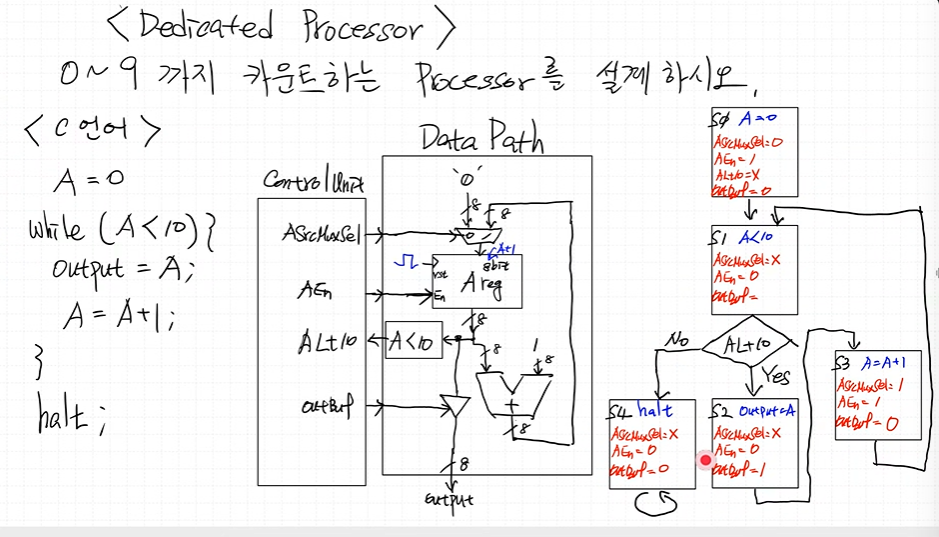 < Dedicated Processor >
0~9 까지 카운트하는 Processor를 설계하시오.
< C언어 >
A = 0
while (A<10) {
output = A;
A = A+1;
}
halt;
Data Path
Control Unit
ASrcMuxSel
AEn
ALt10
OutBuf
'0'
8
8
0 1
A+1
8bit
rst
En
A reg
8
A<10
8
1
8
+
8
8
output
S0 A=0
ASrcMuxSel=0
AEn=1
ALt10=X
OutBuf=0
S1 A<10
ASrcMuxSel=X
AEn=0
OutBuf=
ALt10
No
Yes
S4 halt
ASrcMuxSel=X
AEn=0
OutBuf=0
S2 Output=A
ASrcMuxSel=X
AEn=0
OutBuf=1
S3 A=A+1
ASrcMuxSel=1
AEn=1
OutBuf=0